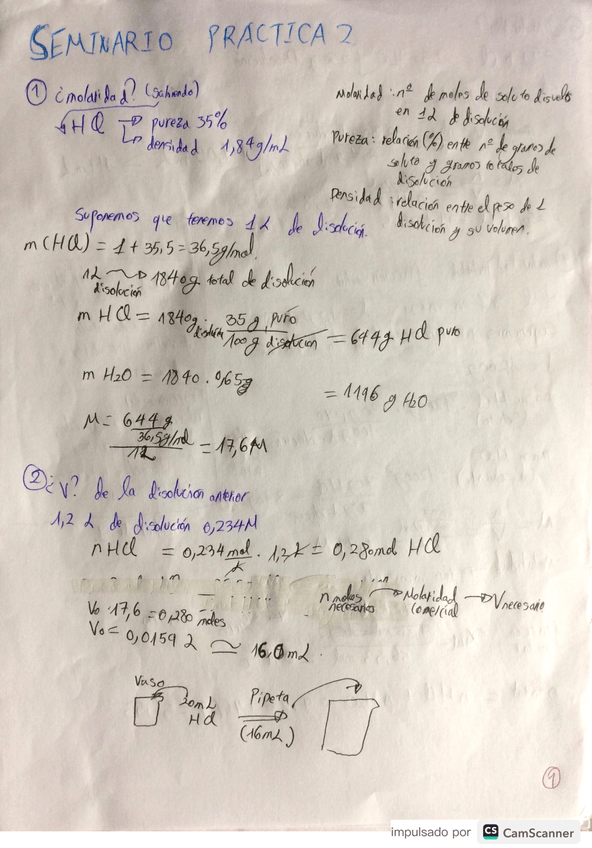 SEMINARIO PRACTICA 2
① ¿molaridad? (sabiendo)
HCl → pureza 35%
→ densidad 1,84g/mL
Molaridad: nº de moles de soluto disuelto
en 1L de disolución
Pureza: relación (%) entre nº de gramos de
soluto y gramos totales de
disolución
Densidad: relación entre el peso de 1
disolución y su volumen.
Suponemos que tenemos 1L de disolución.
m(HCl) = 1 + 35,5 = 36,5g/mol.
1L disolución → 1840g total de disolución
m HCl = 1840g disolución · 35 g puro / 100 g disolución = 644g HCl puro
m H2O = 1840 · 0,65g = 1196 g H2O
M = 644 g / 36,5g/mol / 1L = 17,6M
② ¿V? de la disolucion anterior
1,2 L de disolución 0,234M
nHCl = 0,234 mol/L · 1,2L = 0,280mol HCl
n moles necesarios → Molaridad comercial → Vnecesario
Vo · 17,6 = 0,280 moles
Vo = 0,0159 L ≃ 16,0mL.
Vaso
HCl
Pipeta
(16mL)
impulsado por CS CamScanner